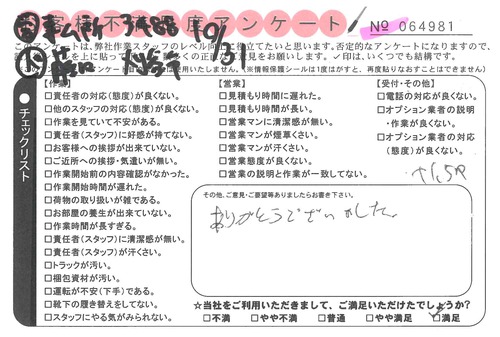 お客様不満足度アンケート
No 064981
このアンケートは、弊社作業スタッフのレベル向上に役立てたいと思います。否定的なアンケートになりますので、
✓印は、いくつでも結構です。
(※情報保護シールは1度はがすと、再度貼りなおすことはできません)
チェックリスト
【作業】
□責任者の対応(態度)が良くない。
□他のスタッフの対応(態度)が良くない。
□作業を見ていて不安がある。
□責任者(スタッフ)に好感が持てない。
□お客様への挨拶が出来ていない。
□ご近所への挨拶・気遣いが無い。
□作業開始前の内容確認がなかった。
□作業開始時間が遅れた。
□荷物の取り扱いが雑である。
□お部屋の養生が出来ていない。
□作業時間が長すぎる。
□責任者(スタッフ)に清潔感が無い。
□責任者(スタッフ)が汗くさい。
□トラックが汚い。
□梱包資材が汚い。
□運転が不安(下手)である。
□靴下の履き替えをしてない。
□スタッフにやる気がみられない。
【営業】
□見積もり時間に遅れた。
□見積もり時間が長い。
□営業マンに清潔感が無い。
□営業マンが煙草くさい。
□営業マンが汗くさい。
□営業態度が良くない。
□営業の説明と作業が一致してない。
【受付・その他】
□電話の対応が良くない。
□オプション業者の説明
・作業が良くない。
□オプション業者の対応
(態度)が良くない。
その他、ご意見・ご要望等ありましたらお書き下さい。
ありがとうございました。
☆当社をご利用いただきまして、ご満足いただけたでしょうか?
□不満 □やや不満 □普通 □やや満足 ☑満足